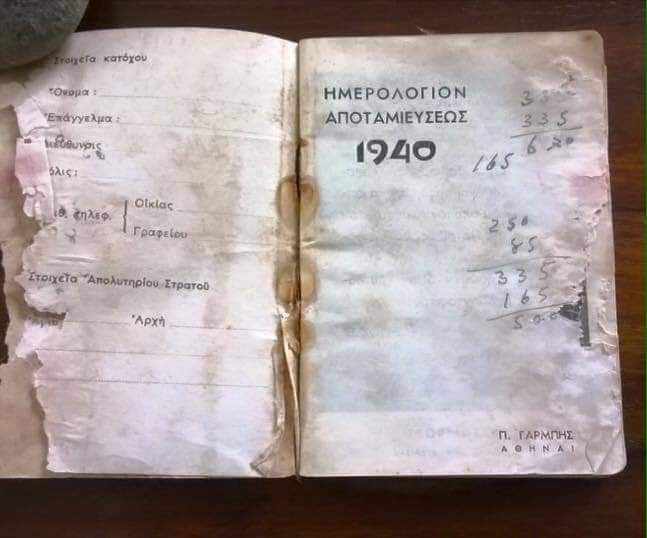 Στοιχεῖα κατόχου
Ὄνομα:
Ἐπάγγελμα:
Οἰκίας
τηλεφ.
Γραφείου
Στοιχεῖα Ἀπολυτηρίου Στρατοῦ
Ἀρχή
ΗΜΕΡΟΛΟΓΙΟΝ
ΑΠΟΤΑΜΙΕΥΣΕΩΣ
1940
335
165
250
85
335
165
500
Π. ΓΑΡΜΠΗΣ
ΑΘΗΝΑΙ